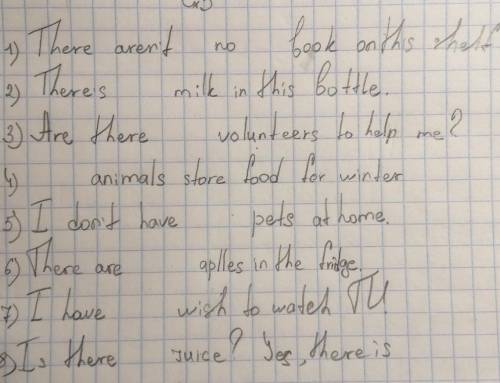 1) There aren't no book on this shelf
2) There's milk in this bottle.
3) Are there volunteers to help me?
4) animals store food for winter
5) I don't have pets at home.
6) There are aplles in the fridge.
7) I have wish to watch TV
8) Is there juice? Yes, there is